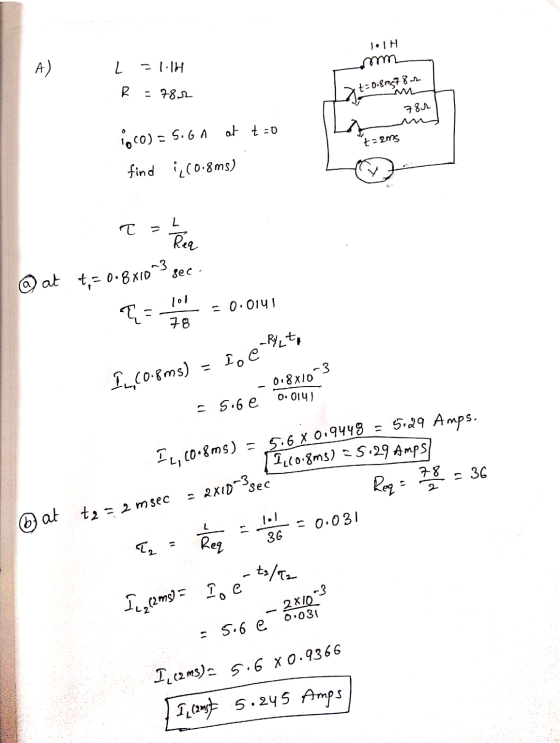 A) L = 1.1H
R = 78Ω
i₀(0) = 5.6 A at t=0
find i_L(0.8ms)
1.1H
t=0.8ms 78Ω
78Ω
t=2ms
V
τ = L/Req
ⓐ at t₁ = 0.8×10⁻³ sec.
τ_L = 1.1/78 = 0.0141
I_L₁(0.8ms) = I₀e^(-R/L t₁)
= 5.6e^(-0.8×10⁻³/0.0141)
I_L₁(0.8ms) = 5.6 × 0.9448 = 5.29 Amps.
I_L(0.8ms) = 5.29 Amps
ⓑ at t₂ = 2 msec = 2×10⁻³ sec
Req = 78/2 = 36
τ₂ = L/Req = 1.1/36 = 0.031
I_L₂(2ms) = I₀e^(-t₂/τ₂)
= 5.6 e^(-2×10⁻³/0.031)
I_L(2ms) = 5.6 × 0.9366
I_L(2ms) = 5.245 Amps